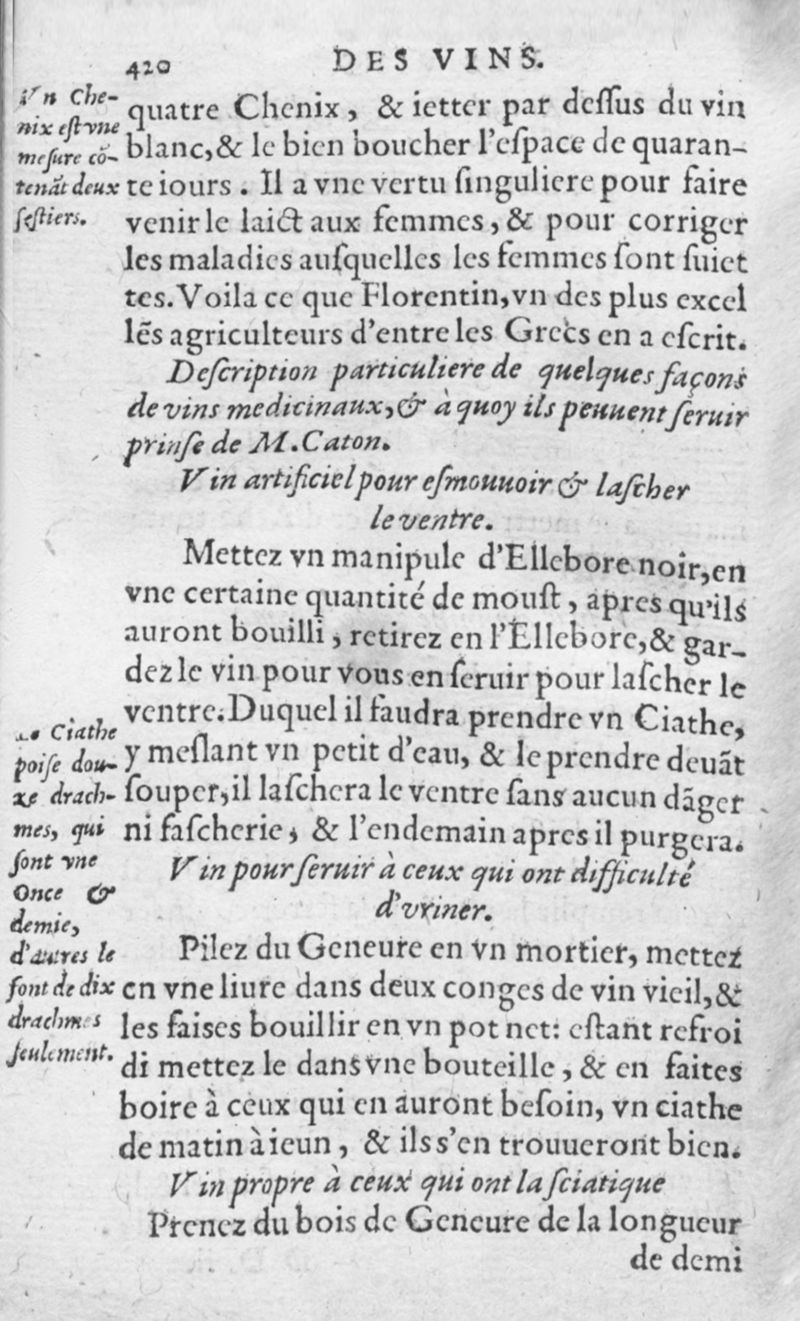 420 DES VINS.
quatre Chenix, & ietter par dessus du vin
blanc, & le bien boucher l'eſpace de quaran-
te iours. Il a vne vertu ſinguliere pour faire
venir le laict aux femmes, & pour corriger
les maladies auſquelles les femmes ſont ſuiet
tes. Voila ce que Florentin, vn des plus excel
lẽs agriculteurs d'entre les Grecs en a eſcrit.
Vn Che-
nix eſt vne
meſure cõ-
tenãt deux
ſeſtiers.
Deſcription particuliere de quelques façons
de vins medicinaux, & à quoy ils peuuent ſeruir
prinſe de M. Caton.
Vin artificiel pour eſmouuoir & laſcher
le ventre.
Mettez vn manipule d'Ellebore noir, en
vne certaine quantité de mouſt, apres qu'ils
auront bouilli, retirez en l'Ellebore, & gar-
dez le vin pour vous en ſeruir pour laſcher le
ventre. Duquel il faudra prendre vn Ciathe,
y meſlant vn petit d'eau, & le prendre deuãt
souper, il laſchera le ventre ſans aucun dãger
ni faſcherie, & l'endemain apres il purgera.
Ciathe
poiſe dou-
xe drach-
mes, qui
ſont vne
Once &
demie,
d'autres le
font de dix
drachmes
ſeulement.
Vin pour ſeruir à ceux qui ont difficulté
d'vriner.
Pilez du Geneure en vn mortier, mettez
en vne liure dans deux conges de vin vieil, &
les faises bouillir en vn pot net: eſtant refroi
di mettez le dans vne bouteille, & en faites
boire à ceux qui en auront beſoin, vn ciathe
de matin à ieun, & ils s'en trouueront bien.
Vin propre à ceux qui ont la ſciatique
Prenez du bois de Geneure de la longueur
de demi